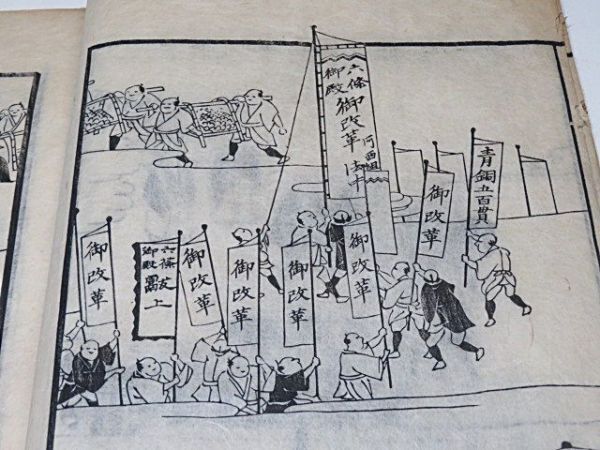 青銅五百貫
御改革
六條
御殿
御改革
河西組
法中
御改革
御改革
御改革
御改革
御殿
上
御改革